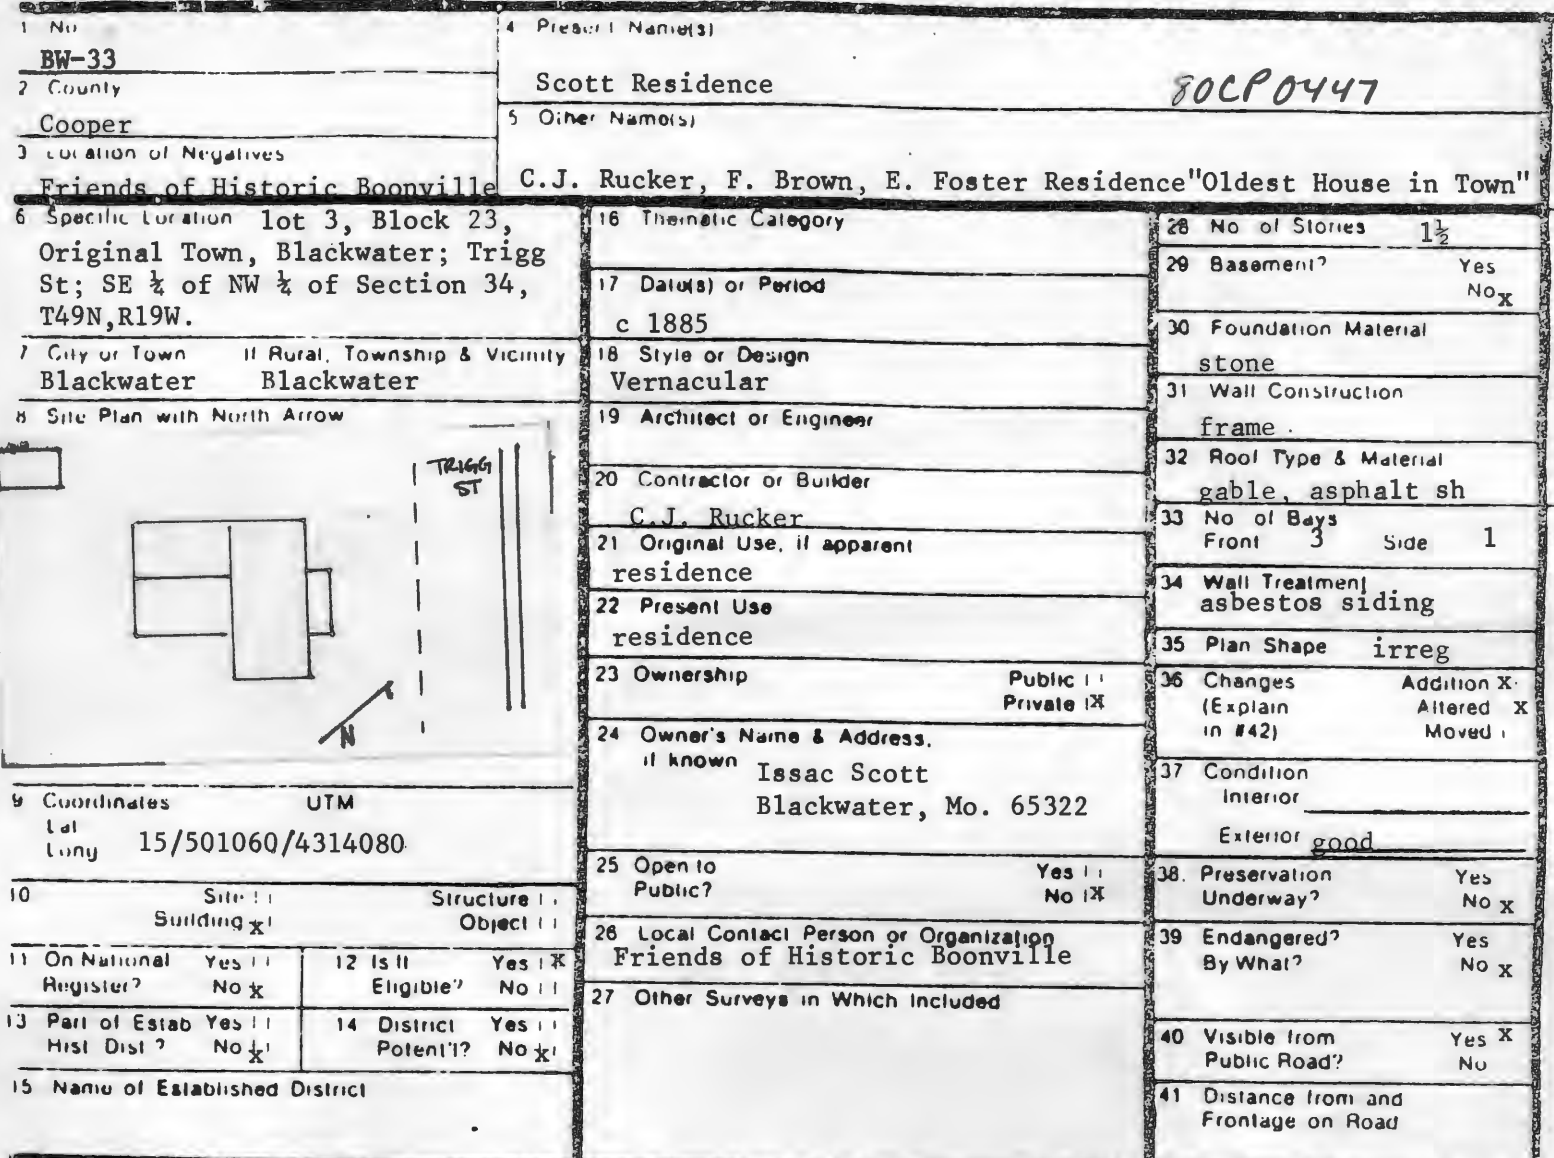 1 No
BW-33
2 County
Cooper
3 Location of Negatives
Friends of Historic Boonville
4 Present Name(s)
Scott Residence
80CP0447
5 Other Name(s)
C.J. Rucker, F. Brown, E. Foster Residence "Oldest House in Town"
6 Specific Location lot 3, Block 23,
Original Town, Blackwater; Trigg
St; SE ¼ of NW ¼ of Section 34,
T49N,R19W.
7 City or Town If Rural, Township & Vicinity
Blackwater Blackwater
8 Site Plan with North Arrow
TRIGG
ST
N
9 Coordinates UTM
Lat
Long 15/501060/4314080
10 Site Structure
Building x Object
11 On National Register? Yes
No x
12 Is It Eligible? Yes X
No
13 Part of Estab Hist Dist? Yes
No x
14 District Potent'l? Yes
No x
15 Name of Established District
16 Thematic Category
17 Date(s) or Period
c 1885
18 Style or Design
Vernacular
19 Architect or Engineer
20 Contractor or Builder
C.J. Rucker
21 Original Use, if apparent
residence
22 Present Use
residence
23 Ownership Public
Private X
24 Owner's Name & Address,
if known Issac Scott
Blackwater, Mo. 65322
25 Open to Yes
Public? No X
26 Local Contact Person or Organization
Friends of Historic Boonville
27 Other Surveys in Which Included
28 No of Stories 1½
29 Basement? Yes
No x
30 Foundation Material
stone
31 Wall Construction
frame
32 Roof Type & Material
gable, asphalt sh
33 No of Bays
Front 3 Side 1
34 Wall Treatment
asbestos siding
35 Plan Shape irreg
36 Changes Addition X
(Explain Altered X
in #42) Moved
37 Condition
Interior
Exterior good
38. Preservation Yes
Underway? No x
39 Endangered? Yes
By What? No x
40 Visible from Yes X
Public Road? No
41 Distance from and
Frontage on Road